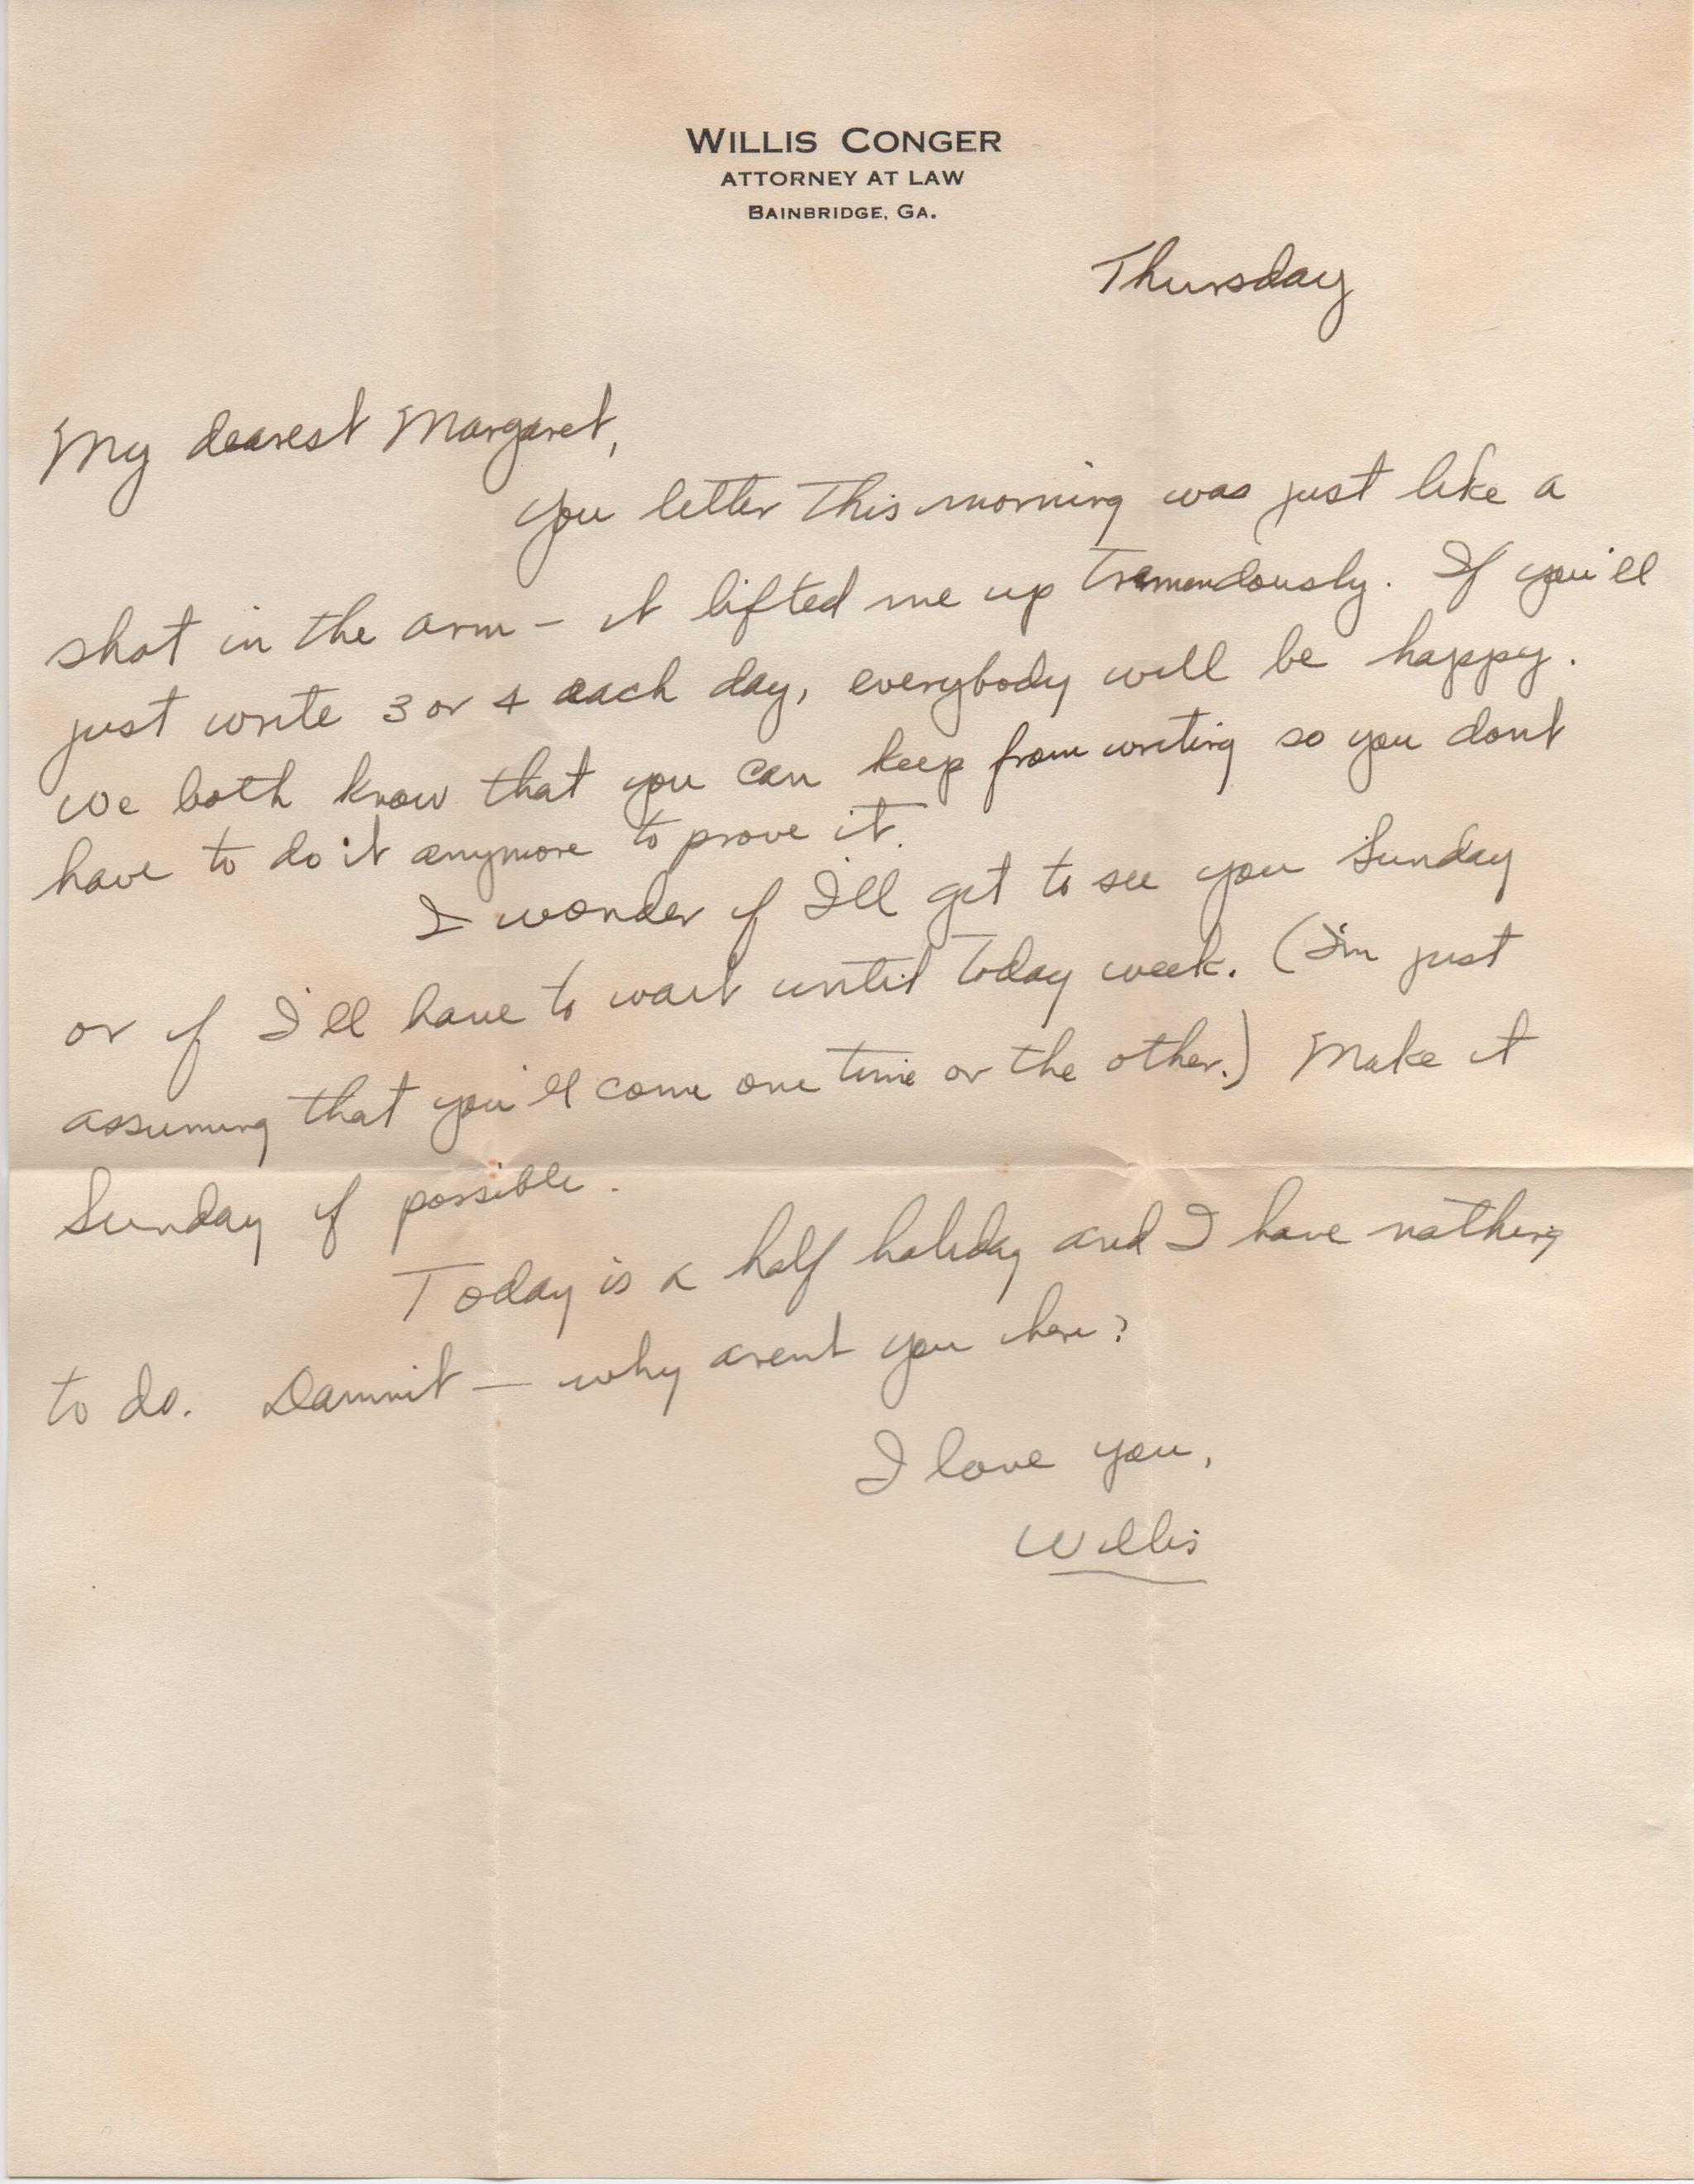 WILLIS CONGER
ATTORNEY AT LAW
BAINBRIDGE, GA.
Thursday
My dearest Margaret,
You letter this morning was just like a
shot in the arm – it lifted me up tremendously. If you'll
just write 3 or 4 each day, everybody will be happy.
We both know that you can keep from writing so you dont
have to do it anymore to prove it.
I wonder if I'll get to see you Sunday
or if I'll have to wait until today week. (I'm just
assuming that you'll come one time or the other.) Make it
Sunday if possible.
Today is a half holiday and I have nothing
to do. Damnit — why arent you here?
I love you,
Willis